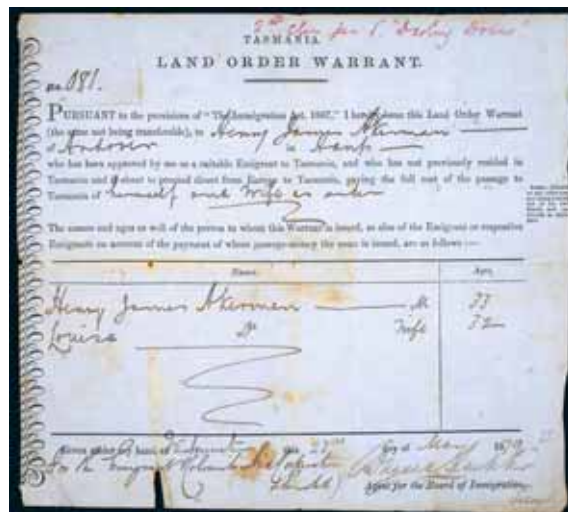 2nd Class per S. "Darling Downs"
TASMANIA
LAND ORDER WARRANT.
No. 081.
PURSUANT to the provisions of "The Immigration Act, 1867," I hereby issue this Land Order Warrant
(the same not being transferable), to Henry James Akerman
of Andover in Hants
who has been approved by me as a suitable Emigrant to Tasmania, and who has not previously resided in
Tasmania and is about to proceed direct from Europe to Tasmania, paying the full cost of the passage to
Tasmania of himself and Wife as under
The names and ages as well of the person to whom this Warrant is issued, as also of the Emigrant or respective
Emigrants on account of the payment of whose passage-money the same is issued, are as follows:—
Name. Age.
Henry James Akerman M 33
Louisa Do Wife 32
Given under my hand at this day of May 1870
Agent for the Board of Immigration.